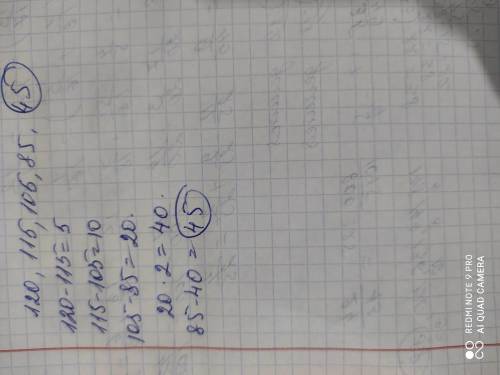 120, 115, 105, 85, 45
120-115=5
115-105=10
105-85=20.
20·2=40.
85-40=45
REDMI NOTE 9 PRO
AI QUAD CAMERA